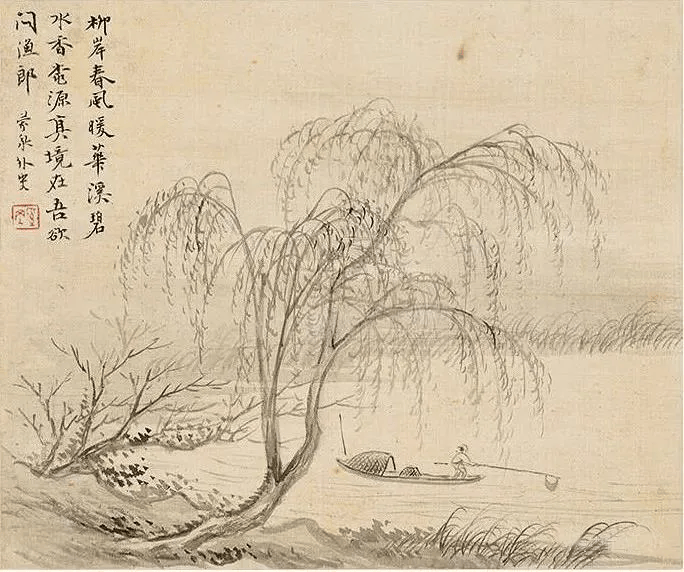 柳岸春风暖華溪碧
水香桃源真境在吾欲
问渔郎
蒙泉外史